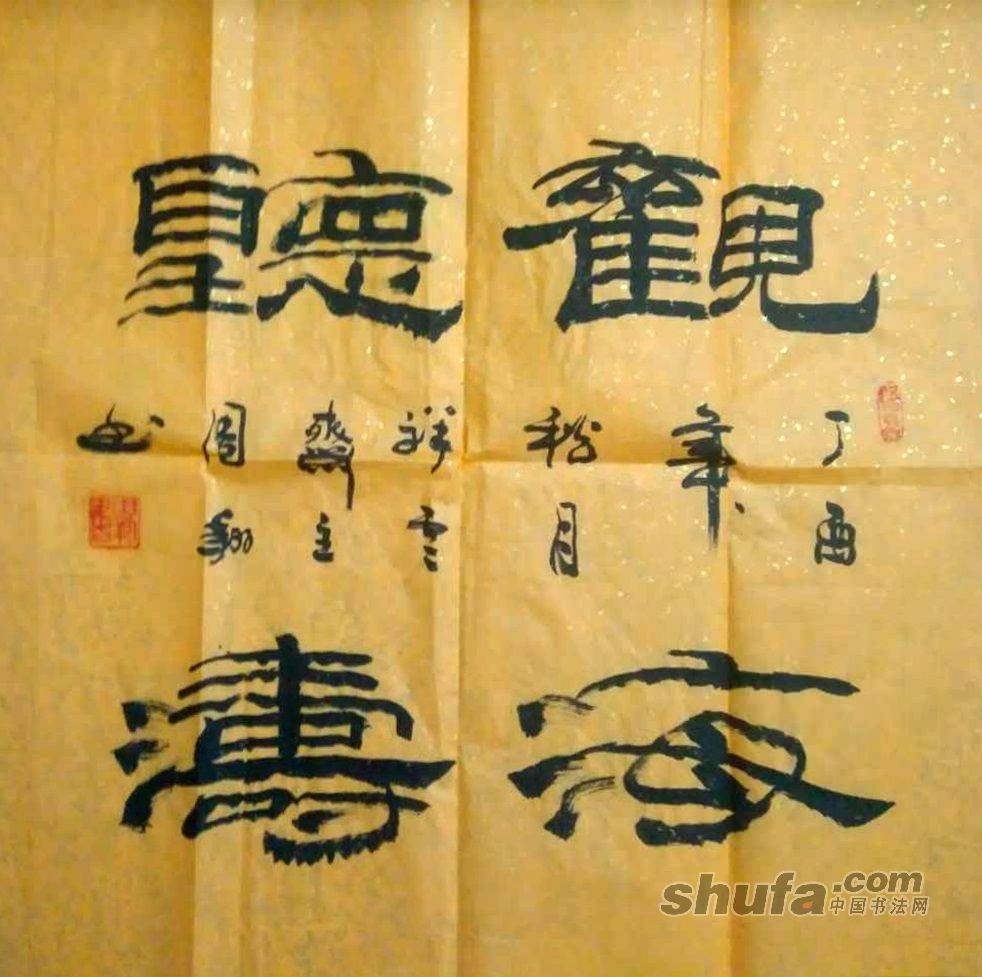 觀海
聽濤
丁酉
年
秋月
祥雲
齋主
周翔
书
shufa.com
中国书法网